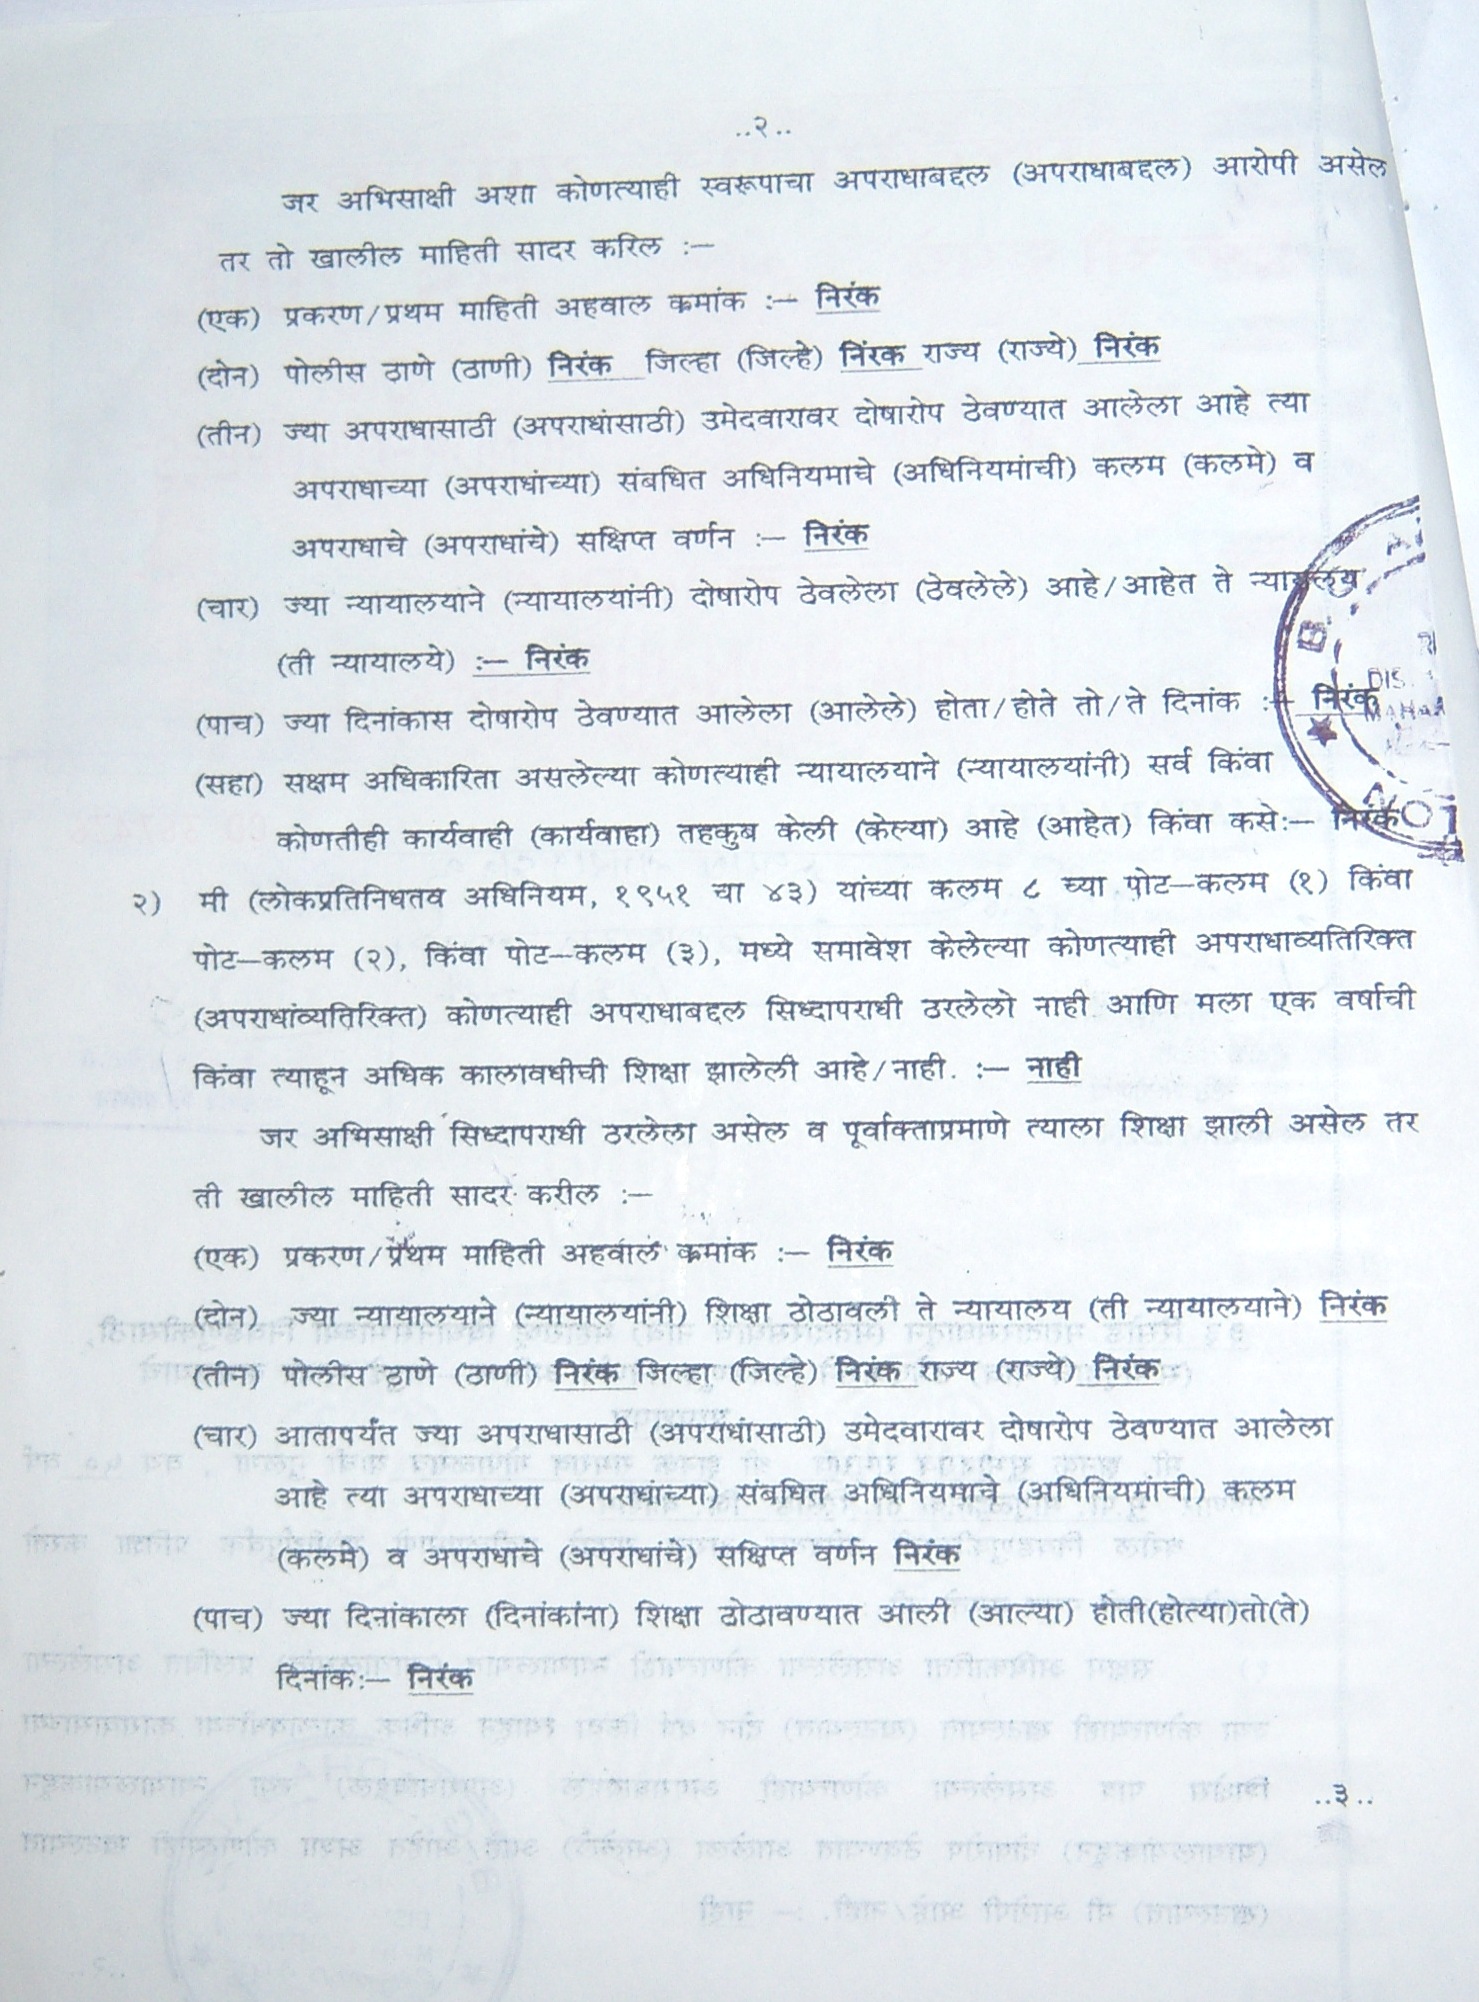 ..२..
जर अभिसाक्षी अशा कोणत्याही स्वरूपाचा अपराधाबद्दल (अपराधाबद्दल) आरोपी असेल
तर तो खालील माहिती सादर करिल :—
(एक) प्रकरण/प्रथम माहिती अहवाल क्रमांक :— निरंक
(दोन) पोलीस ठाणे (ठाणी) निरंक जिल्हा (जिल्हे) निंरक राज्य (राज्ये) निरंक
(तीन) ज्या अपराधासाठी (अपराधांसाठी) उमेदवारावर दोषारोप ठेवण्यात आलेला आहे त्या
अपराधाच्या (अपराधांच्या) संबधित अधिनियमाचे (अधिनियमांची) कलम (कलमे) व
अपराधाचे (अपराधांचे) सक्षिप्त वर्णन :— निरंक
(चार) ज्या न्यायालयाने (न्यायालयांनी) दोषारोप ठेवलेला (ठेवलेले) आहे/आहेत ते न्यायालय
(ती न्यायालये) :— निरंक
(पाच) ज्या दिनांकास दोषारोप ठेवण्यात आलेला (आलेले) होता/होते तो/ते दिनांक :— निरंक
(सहा) सक्षम अधिकारिता असलेल्या कोणत्याही न्यायालयाने (न्यायालयांनी) सर्व किंवा
कोणतीही कार्यवाही (कार्यवाहा) तहकुब केली (केल्या) आहे (आहेत) किंवा कसे:— निरंक
२) मी (लोकप्रतिनिधतव अधिनियम, १९५१ चा ४३) यांच्या कलम ८ च्या पोट—कलम (१) किंवा
पोट—कलम (२), किंवा पोट—कलम (३), मध्ये समावेश केलेल्या कोणत्याही अपराधाव्यतिरिक्त
(अपराधांव्यतिरिक्त) कोणत्याही अपराधाबद्दल सिध्दापराधी ठरलेलो नाही आणि मला एक वर्षाची
किंवा त्याहून अधिक कालावधीची शिक्षा झालेली आहे/नाही. :— नाही
जर अभिसाक्षी सिध्दापराधी ठरलेला असेल व पूर्वाक्ताप्रमाणे त्याला शिक्षा झाली असेल तर
ती खालील माहिती सादर करील :—
(एक) प्रकरण/प्रथम माहिती अहवाल क्रमांक :— निरंक
(दोन) ज्या न्यायालयाने (न्यायालयांनी) शिक्षा ठोठावली ते न्यायालय (ती न्यायालयाने) निरंक
(तीन) पोलीस ठाणे (ठाणी) निरंक जिल्हा (जिल्हे) निरंक राज्य (राज्ये) निरंक
(चार) आतापर्यंत ज्या अपराधासाठी (अपराधांसाठी) उमेदवारावर दोषारोप ठेवण्यात आलेला
आहे त्या अपराधाच्या (अपराधांच्या) संबधित अधिनियमाचे (अधिनियमांची) कलम
(कलमे) व अपराधाचे (अपराधांचे) सक्षिप्त वर्णन निरंक
(पाच) ज्या दिनांकाला (दिनांकांना) शिक्षा ठोठावण्यात आली (आल्या) होती(होत्या)तो(ते)
दिनांक:— निरंक
..३..